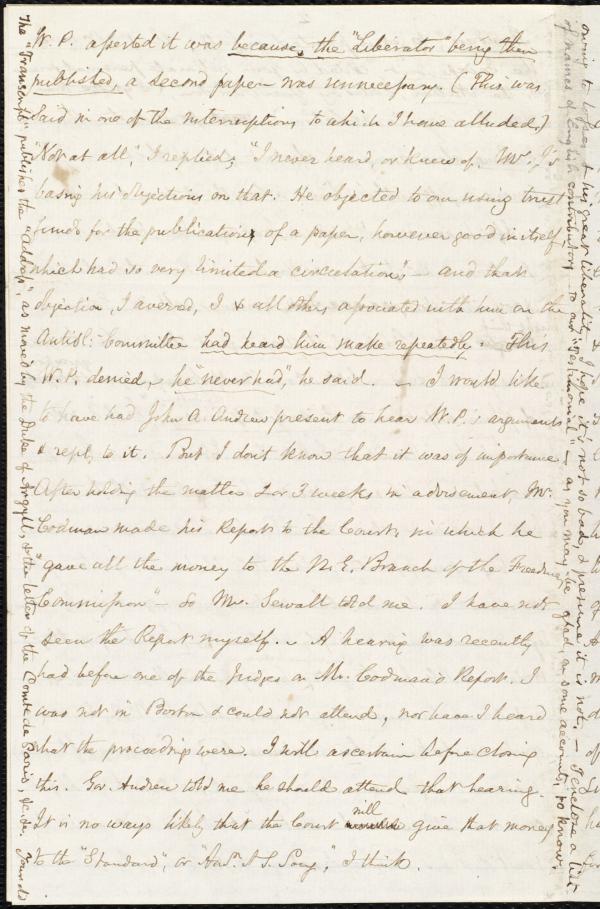 W. P. asserted it was because, the "Liberator" being then
published, a second paper was unnecessary. (This was
said in one of the interruptions to which I have alluded.)
"Not at all," I replied; "I never heard, or knew of Mr. J.'s
basing his objections on that. He objected to our using trust
funds for the publication of a paper, however good in itself,
which had so very limited a circulation" – and that
objection, I averred, I & all others associated with him on the
Antisl: Committee had heard him make repeatedly. This
W. P. denied, he "never had", he said. – I would like
to have had John A. Andrew present to hear W. P.'s arguments
& reply to it. But I don't know that it was of importance.
After holding the matter 2 or 3 weeks in advisement, Mr.
Codman made his Report to the Court, in which he
"gave all the money to the N. E. Branch of the Freedmen
Commission" – So Mr. Sewall told me. I have not
seen the Report myself. – A hearing was recently
had before one of the Judges on Mr. Codman's Report. I
was not in Boston & could not attend, nor have I heard
what the proceedings were. I will ascertain before closing
this. Gov. Andrew told me he should attend that hearing.
It is no ways likely that the Court will give that money
to the "Standard", or "Am. A. S. Socy", I think.
The "Transcript" publishes the "Address", as moved by the Duke of Argyll, & the letter of the Comte de Paris, &c. &c.
owing to & his great liberality, I hope it is not so bad, & presume it is not. – I enclose a list
of names of English contributors to our "testimonial" – as you may be glad, on some accounts, to know.